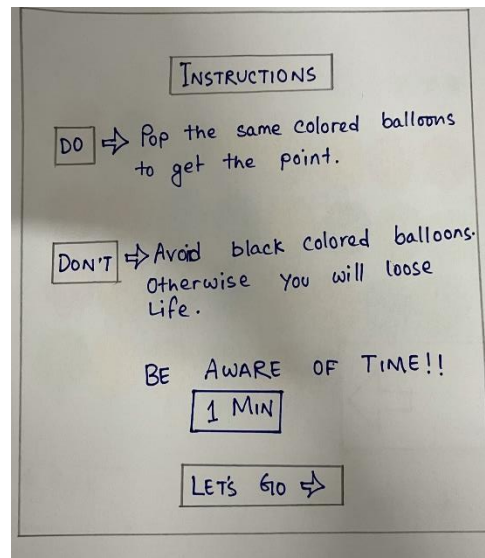 INSTRUCTIONS
DO ⇨ Pop the same colored balloons
to get the point.
DON'T ⇨ Avoid black colored balloons.
Otherwise you will loose
Life.
BE AWARE OF TIME!!
1 MIN
LET'S GO ⇨